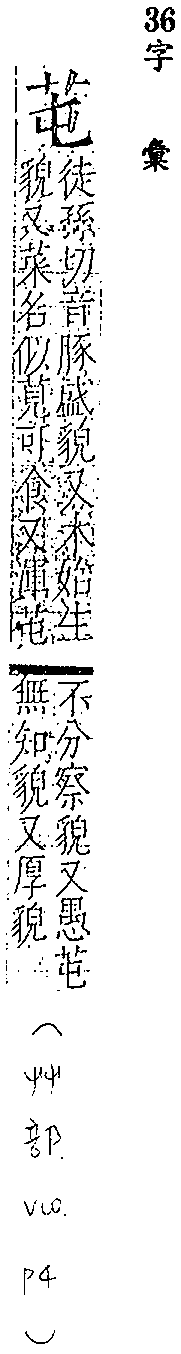 36
字彙
芚
徒孫切音豚盛貌又木始生
貌又菜名似莧可食又渾芚
不分察貌又愚芚
無知貌又厚貌
(艸部. V10. P4)